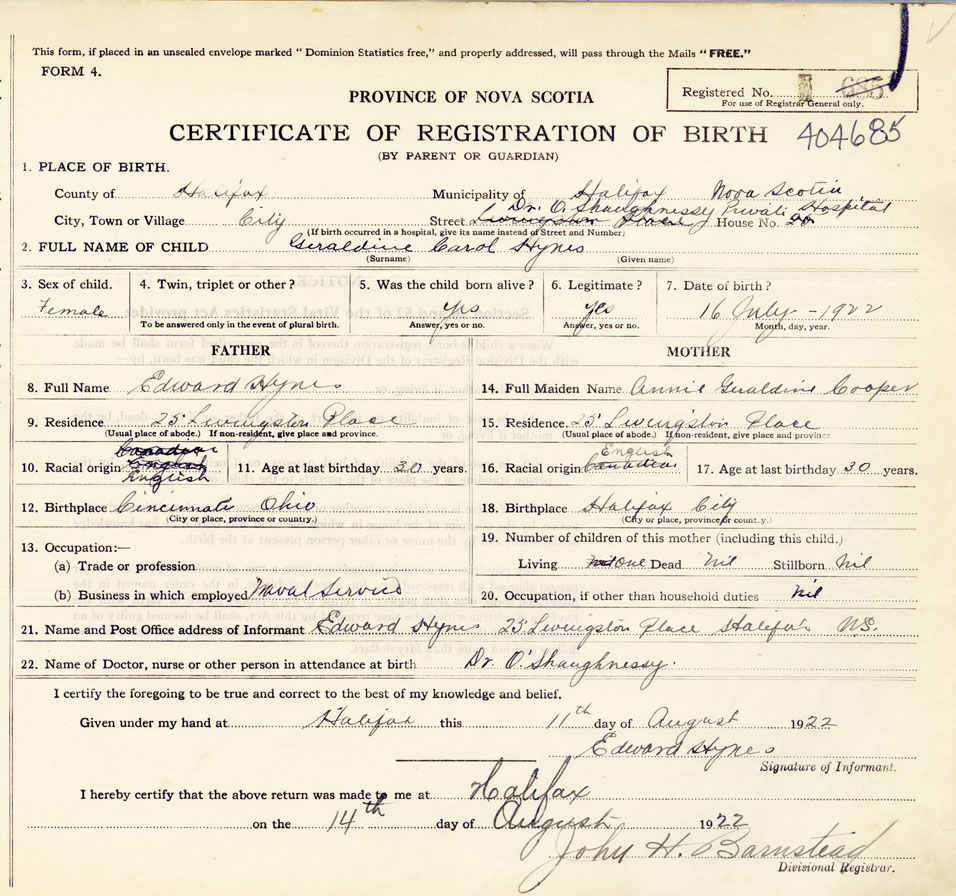 This form, if placed in an unsealed envelope marked "Dominion Statistics free," and properly addressed, will pass through the Mails "FREE."
FORM 4.
Registered No. 685
For use of Registrar General only.
PROVINCE OF NOVA SCOTIA
CERTIFICATE OF REGISTRATION OF BIRTH 404685
(BY PARENT OR GUARDIAN)
1. PLACE OF BIRTH.
County of Halifax Municipality of Halifax Nova Scotia
Dr. O'Shaughnessy Private Hospital
City, Town or Village City Street Livingston Place House No. 25
(If birth occurred in a hospital, give its name instead of Street and Number)
2. FULL NAME OF CHILD Geraldine Carol Hynes
(Surname) (Given name)
3. Sex of child. 4. Twin, triplet or other? 5. Was the child born alive? 6. Legitimate? 7. Date of birth?
Female yes yes 16 July - 1922
To be answered only in the event of plural birth. Answer, yes or no. Answer, yes or no. Month, day, year.
FATHER MOTHER
8. Full Name Edward Hynes 14. Full Maiden Name Annie Geraldine Cooper
9. Residence 25 Livingston Place 15. Residence 25 Livingston Place
(Usual place of abode.) If non-resident, give place and province. (Usual place of abode.) If non-resident, give place and province
Canadian English
10. Racial origin English 11. Age at last birthday 30 years. 16. Racial origin Canadian 17. Age at last birthday 30 years.
English
12. Birthplace Cincinnati Ohio 18. Birthplace Halifax City
(City or place, province or country.) (City or place, province or country.)
13. Occupation:— 19. Number of children of this mother (including this child.)
(a) Trade or profession Living One Dead Nil Stillborn Nil
(b) Business in which employed Naval Service 20. Occupation, if other than household duties nil
21. Name and Post Office address of Informant Edward Hynes 25 Livingston Place Halifax N.S.
22. Name of Doctor, nurse or other person in attendance at birth Dr. O'Shaughnessy.
I certify the foregoing to be true and correct to the best of my knowledge and belief.
Given under my hand at Halifax this 11th day of August 1922
Edward Hynes
Signature of Informant.
I hereby certify that the above return was made to me at Halifax
on the 14th day of August 1922
John H. Barnstead
Divisional Registrar.